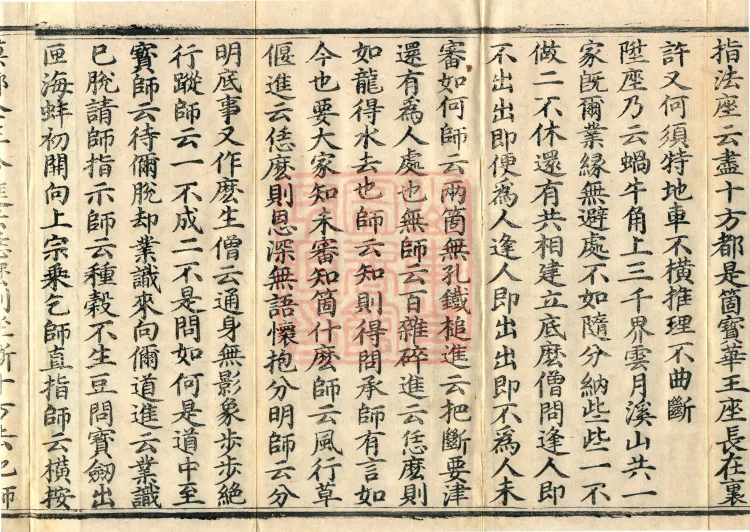 指法座云盡十方都是箇寶華王座長在裏
許又何須特地車不橫推理不曲斷
陞座乃云蝸牛角上三千界雲月溪山共一
家既爾業緣無避處不如隨分納些些一不
做二不休還有共相建立底麼僧問逢人即
不出出即便為人逢人即出出即不為人未
審如何師云兩箇無孔鐵槌進云把斷要津
還有為人處也無師云百雜碎進云恁麼則
如龍得水去也師云知則得問承師有言如
今也要大家知未審知箇什麼師云風行草
偃進云恁麼則恩深無語懷抱分明師云分
明底事又作麼生僧云通身無影象步步絕
行蹤師云一不成二不是問如何是道中至
寶師云待儞脫却業識來向儞道進云業識
已脫請師指示師云種穀不生豆問寶劒出
匣海蚌初開向上宗乘乞師直指師云橫按